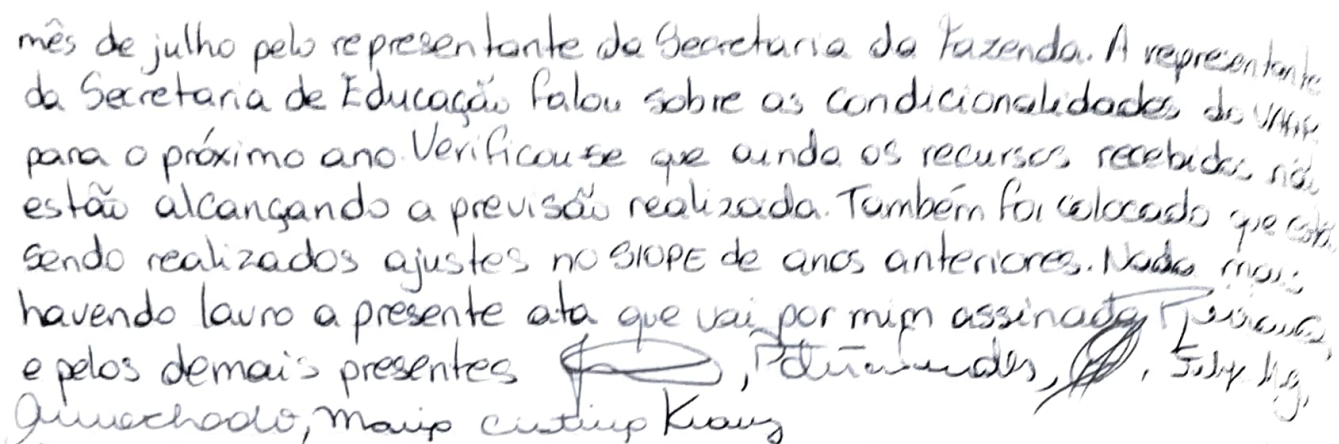 mês de julho pelo representante da Secretaria da Fazenda. A representante
da Secretaria de Educação falou sobre as condicionalidades do VAAR
para o próximo ano. Verificou-se que ainda os recursos recebidos não
estão alcançando a previsão realizada. Também foi colocado que está
sendo realizados ajustes no SIOPE de anos anteriores. Nada mais
havendo lavro a presente ata que vai por mim assinada
e pelos demais presentes
Maria Cristina Kranz